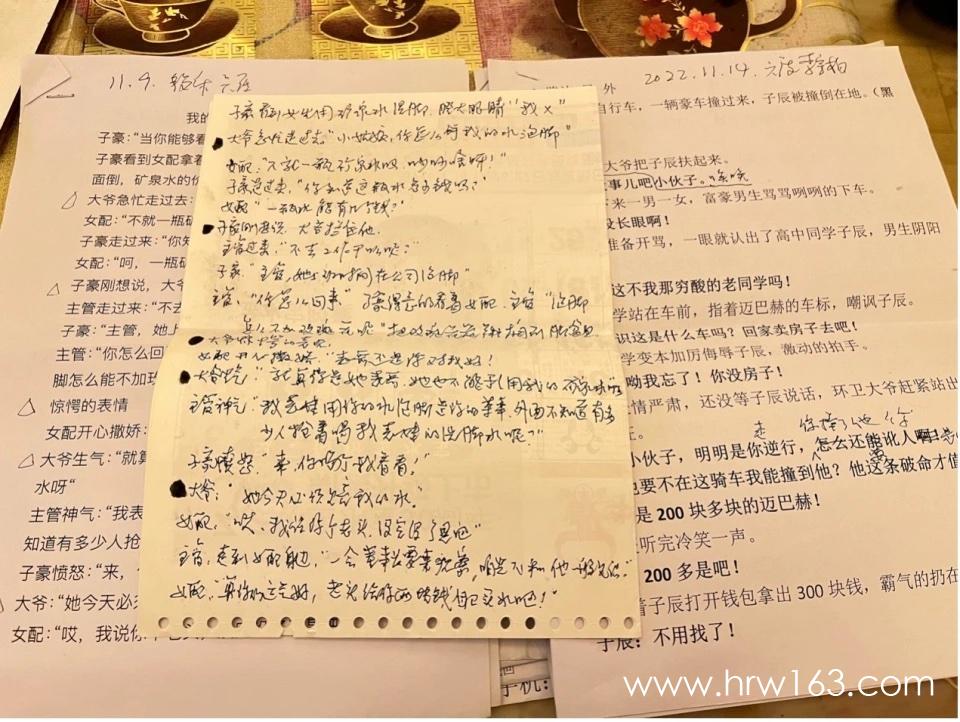 11.9.
我的
子豪：“当你能够看
子豪看到女配拿着
面倒，矿泉水的价
大爷急忙走过去：
女配：“不就一瓶矿
子豪走过来：“你知
女配：“呵，一瓶矿
子豪刚想说，大爷
主管走过来：“不去
子豪：“主管，她上
主管：“你怎么回
脚怎么能不加玫
惊愕的表情
女配开心撒娇：
大爷生气：“就算
水呀”
主管神气：“我表
知道有多少人抢
子豪愤怒：“来，
大爷：“她今天必须
女配：“哎，我说你
子豪看到女生用矿泉水泡脚，瞪大眼睛“我×”
大爷急忙走过去“小姑娘，你怎么能用我的水泡脚”
女配：“不就一瓶矿泉水吗，吵吵啥呀！”
子豪走过来，“你知道这瓶水多少钱吗？”
女配“一瓶水能有几个钱？”
子豪刚想说，大爷拦住他。
主管过来，“不去工作干啥呢？”
子豪“主管，她上班期间在公司泡脚”
主管：“你怎么回事”子豪得意的看着女配，主管“泡脚
怎么不加玫瑰花呢”
大爷惊愕的表情
女配开心撒娇：
大爷生气：“就算你是她表哥，她也不能用我的
主管神气“我表妹用你的水泡脚是你的荣幸，外面不知道有多
少人抢着喝我表妹的洗脚水呢？”
子豪愤怒：“来，你喝个我看看！”
大爷：“她今天必须赔我的水。”
女配：“哎，我说你个老头，没完没了是吧”
主管，走到女配身边，“一会董事长要来视察，咱先不和他一般见识。”
女配：“算你运气好，老头给你两块钱自己买水吧！”
2022.11.14.
外
自行车，一辆豪车撞过来，子辰被撞倒在地。（黑
大爷把子辰扶起来。
事儿吧小伙子。
下来一男一女，富豪男生骂骂咧咧的下车。
没长眼啊！
准备开骂，一眼就认出了高中同学子辰，男生阴阳
这不我那穷酸的老同学吗！
学站在车前，指着迈巴赫的车标，嘲讽子辰。
识这是什么车吗？回家卖房子去吧！
学变本加厉侮辱子辰，激动的拍手。
呦我忘了！你没房子！
情严肃，还没等子辰说话，环卫大爷赶紧站出
走
小伙子，明明是你逆行，怎么还能讹人
也要不在这骑车我能撞到他？他这条破命才值
是 200 块多块的迈巴赫！
听完冷笑一声。
200 多是吧！
着子辰打开钱包拿出 300 块钱，霸气的扔在
子辰：不用找了！
手机：
www.hrw163.com